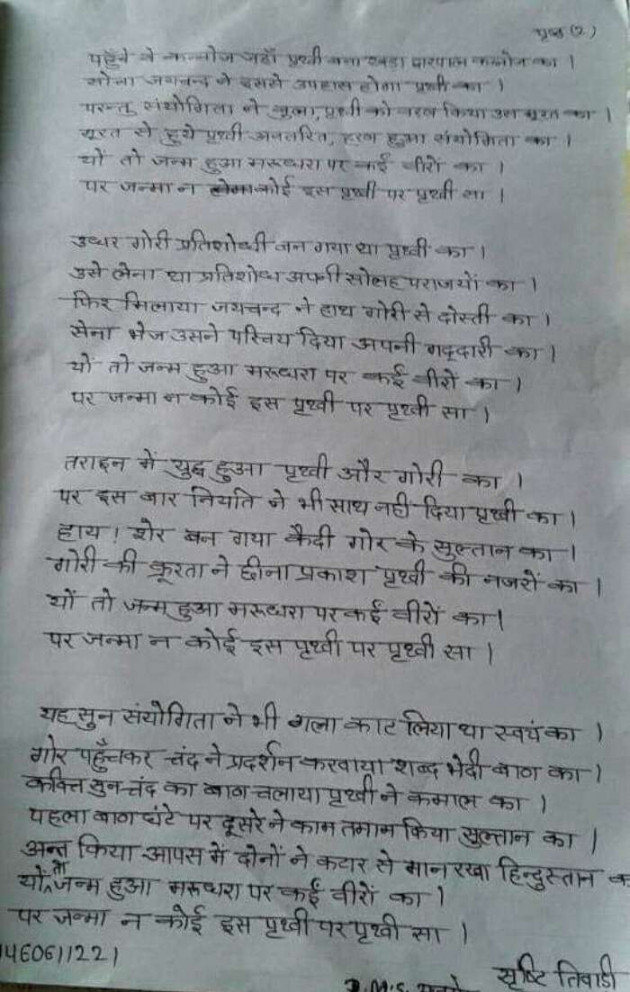 पृष्ठ (2)
पहुँचे वे कन्नौज जहाँ पृथ्वी बना खड़ा द्वारपाल कन्नौज का ।
सोचा जयचन्द ने इससे उपहास होगा पृथ्वी का ।
परन्तु संयोगिता ने भुला, पृथ्वी को वरण किया उस मूरत का ।
मूरत से हुये पृथ्वी अवतरित, हरण हुआ संयोगिता का ।
यों तो जन्म हुआ मरूधरा पर कई वीरों का ।
पर जन्मा न कोई इस पृथ्वी पर पृथ्वी सा ।
उधर गोरी प्रतिशोधी बन गया था पृथ्वी का ।
उसे लेना था प्रतिशोध अपनी सोलह पराजयों का ।
फिर मिलाया जयचन्द ने हाथ गोरी से दोस्ती का ।
सेना भेज उसने परिचय दिया अपनी गद्दारी का ।
यों तो जन्म हुआ मरूधरा पर कई वीरों का ।
पर जन्मा न कोई इस पृथ्वी पर पृथ्वी सा ।
तराइन में युद्ध हुआ पृथ्वी और गोरी का ।
पर इस बार नियति ने भी साथ नही दिया पृथ्वी का ।
हाय ! शेर बन गया कैदी गोर के सुल्तान का ।
गोरी की क्रूरता ने छीना प्रकाश पृथ्वी की नजरों का ।
यों तो जन्म हुआ मरूधरा पर कई वीरों का ।
पर जन्मा न कोई इस पृथ्वी पर पृथ्वी सा ।
यह सुन संयोगिता ने भी गला काट लिया था स्वयं का ।
गोर पहुँचकर चंद ने प्रदर्शन करवाया शब्द भेदी बाण का ।
कवित्त सुन चंद का बाण चलाया पृथ्वी ने कमाल का ।
पहला बाण घंटे पर दूसरे ने काम तमाम किया सुल्तान का ।
अन्त किया आपस में दोनों ने कटार से मान रखा हिन्दुस्तान का
यों तो जन्म हुआ मरूधरा पर कई वीरों का ।
पर जन्मा न कोई इस पृथ्वी पर पृथ्वी सा ।
1460611221
सृष्टि तिवाडी